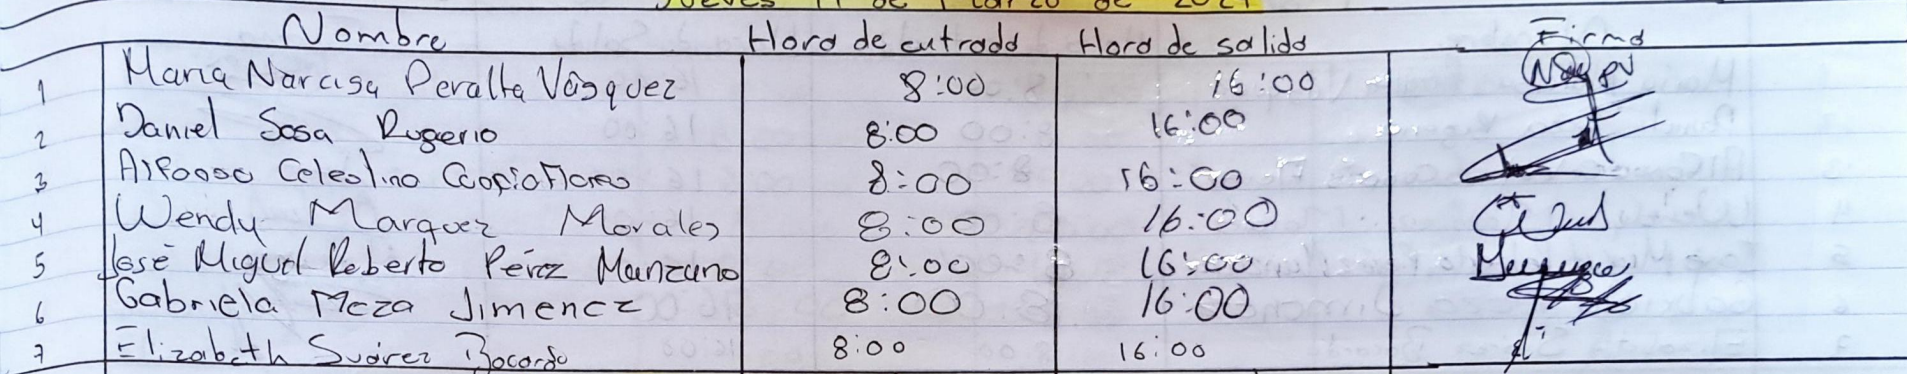 Jueves 11 de Marzo de 2021
Nombre Hora de entrada Hora de salida Firma
1 Maria Narcisa Peralta Vásquez 8:00 16:00
2 Daniel Sosa Rugerio 8:00 16:00
3 Alfonso Celestino Flores 8:00 16:00
4 Wendy Marquez Morales 8:00 16:00
5 José Miguel Roberto Pérez Manzano 8:00 16:00
6 Gabriela Meza Jimenez 8:00 16:00
7 Elizabeth Suárez Bocardo 8:00 16:00